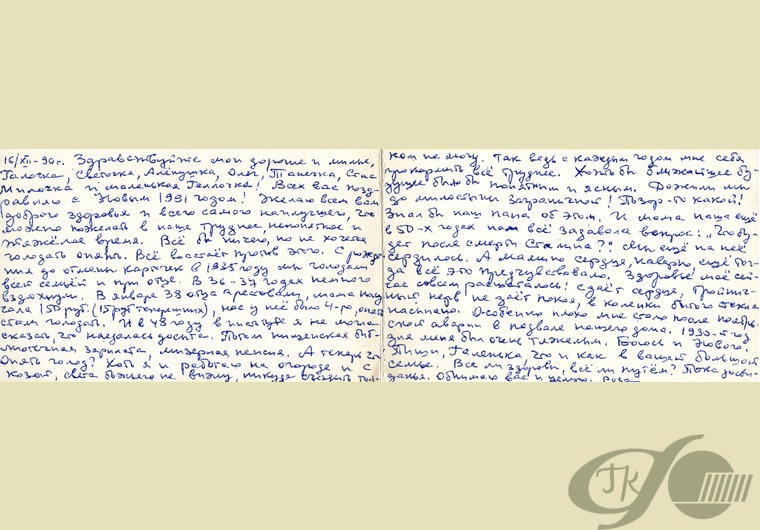 16/XII-90г. Здравствуйте мои дорогие и милые,
Галочка, Светочка, Алёнушка, Олег, Танечка, Стас
Милочка и маленькая Геллочка! Всех вас позд-
равляю с Новым 1991 годом! Желаю всем вам
доброго здоровья и всего самого наилучшего, что
можно пожелать в наше трудное, непонятное и
тяжёлое время. Всё бы ничего, но не хочется
голодать опять. Всё восстаёт против этого. С рожде-
ния до отмены карточек в 1935 году мы голодали
всей семьёй и при отце. В 36-37 годах немного
вздохнули. В январе 38 отца арестовали, мама полу
чала 150 руб. (15 руб теперешних), нас у неё было 4-ро, опять
стали голодать. И в 48 году в институте я не могла
сказать, что наедалась досыта. Потом нищенская биб-
лиотечная зарплата, мизерная пенсия. А теперь что
Опять голод? Хоть я и работаю на огороде и с
козой, света божьего не вижу, никуда съездить тол-
ком не могу. Так ведь с каждым годом мне себя
прокормить всё труднее. Хоть бы ближайшее бу-
дущее было бы понятным и ясным. Дожили мы
до милостыни заграничной! Позор-то какой!
Знал бы наш папа об этом. И мама наша ещё
в 50-х годах нам всё задавала вопрос: "Что бу-
дет после смерти Сталина?" Мы ещё на неё
сердились. А мамино сердце, наверно, ещё тог-
да всё это предчувствовало. Здоровье моё сей-
час совсем расшаталось: сдаёт сердце, тройнич-
ный нерв не даёт покоя, в коленки битого стекла
насыпано. Особенно плохо мне стало после ноябрь-
ской аварии в подвале нашего дома. 1990-й год
для меня был очень тяжёлым. Боюсь и Нового.
Пиши, Галенька, что и как в вашей большой
семье. Все ли здоровы, всё ли путём? Пока досви-
данья. Обнимаю вас и целую. Роза
ГК